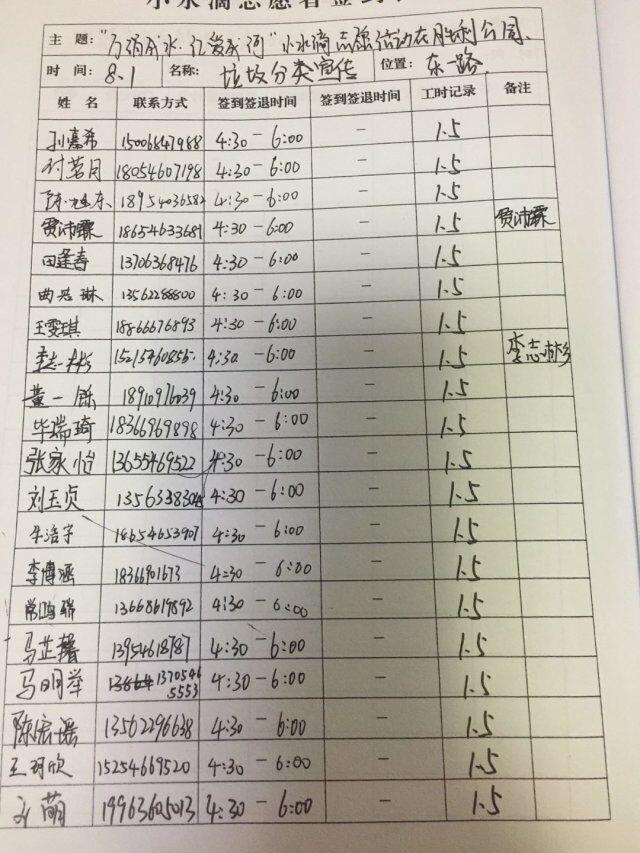 小水滴志愿者签到
主 题： “万滴成水·亿发成河”小水滴志愿活动在胜利公园、
时 间： 8.1 名称： 垃圾分类宣传 位置： 东一路
姓 名 联系方式 签到签退时间 签到签退时间 工时记录 备注
刘嘉希 15006847988 4:30－6:00 － 1.5
付茗月 18054607198 4:30－6:00 － 1.5
18954036582 4:30－6:00 － 1.5
贾沛霖 18654633681 4:30－6:00 － 1.5 贾沛霖
田逢春 13706368476 4:30－6:00 － 1.5
琳 13562288800 4:30－6:00 － 1.5
王雯琪 18866676893 4:30－6:00 － 1.5
李志彬 15215460855 4:30－6:00 － 1.5 李志彬
黄一 18910976039 4:30－6:00 － 1.5
毕瑞琦 18366969898 4:30－6:00 － 1.5
张家怡 13655469522 4:30－6:00 － 1.5
刘玉贞 135633830 4:30－6:00 － 1.5
牛浩宇 18654653907 4:30－6:00 － 1.5
李博涵 18366901673 4:30－6:00 － 1.5
常鸣瑞 13668619892 4:30－6:00 － 1.5
马芷馨 13954618787 4:30－6:00 － 1.5
马明举 1370546
5553 4:30－6:00 － 1.5
陈宏瑶 13562296638 4:30－6:00 － 1.5
王玥欣 15254669520 4:30－6:00 － 1.5
刘萌 19963605013 4:30－6:00 － 1.5